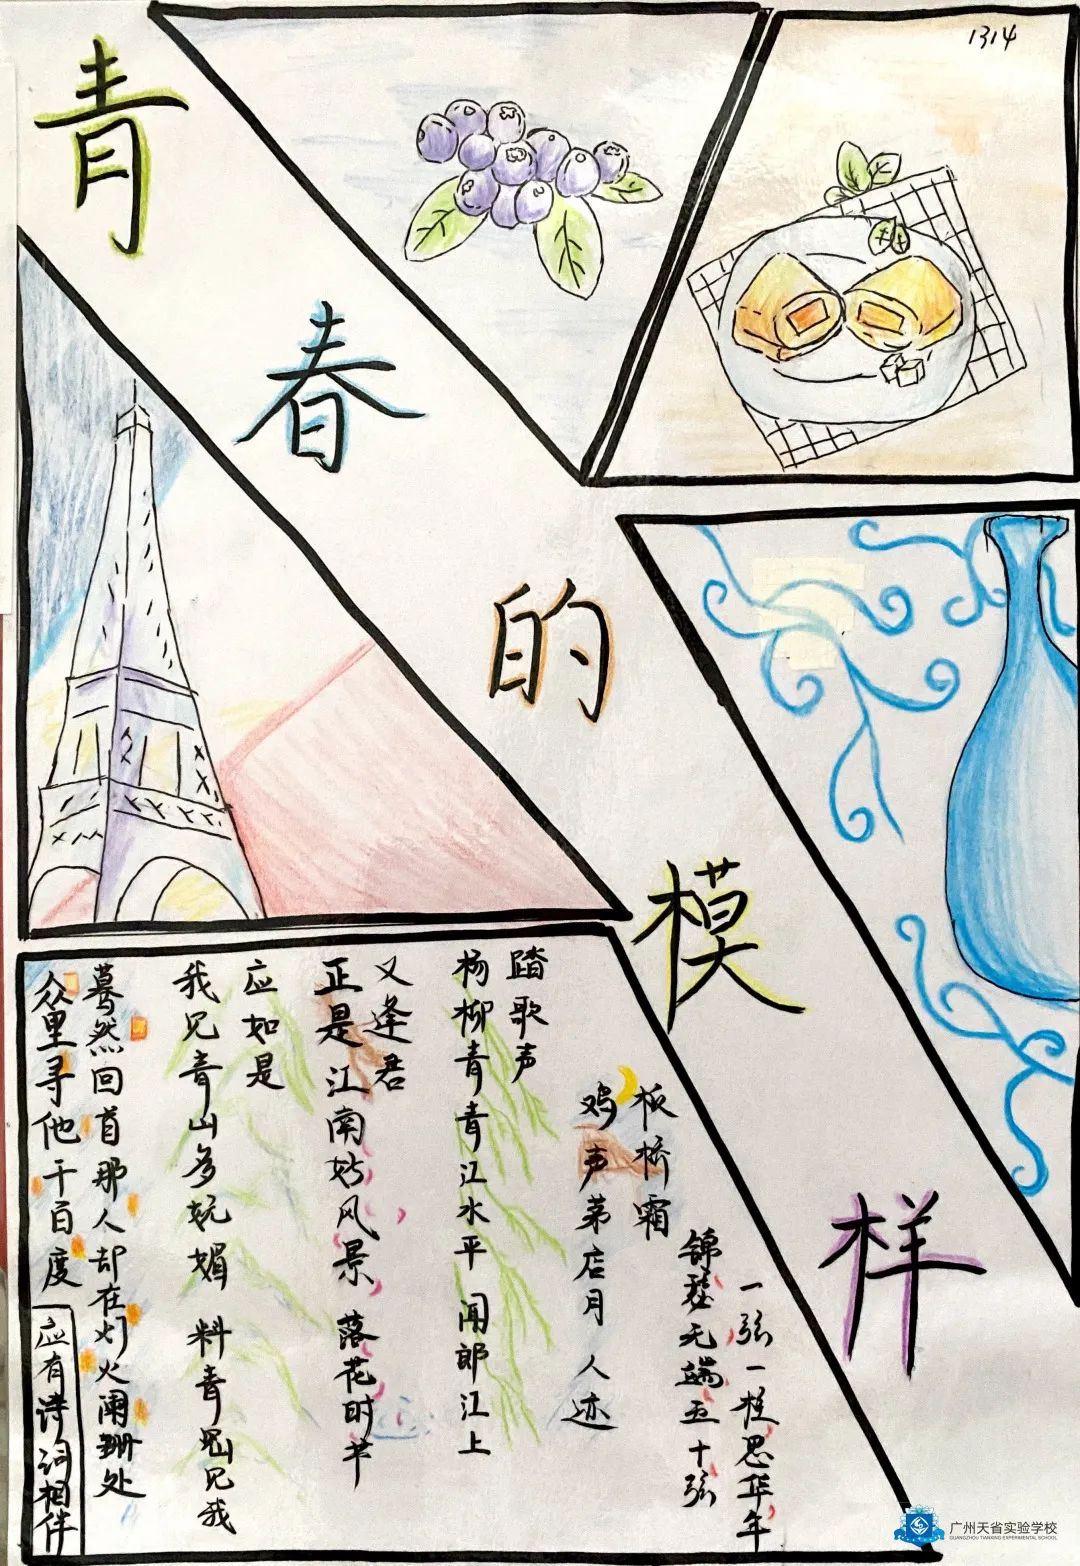 1314
青春的模样
众里寻他千百度
应有诗词相伴
蓦然回首那人却在灯火阑珊处
我见青山多妩媚 料青山见我
应如是
正是江南好风景 落花时节
又逢君
杨柳青青江水平 闻郎江上
踏歌声
鸡声茅店月 人迹
板桥霜
锦瑟无端五十弦
一弦一柱思华年
广州天省实验学校
GUANGZHOU TIANXING EXPERIMENTAL SCHOOL